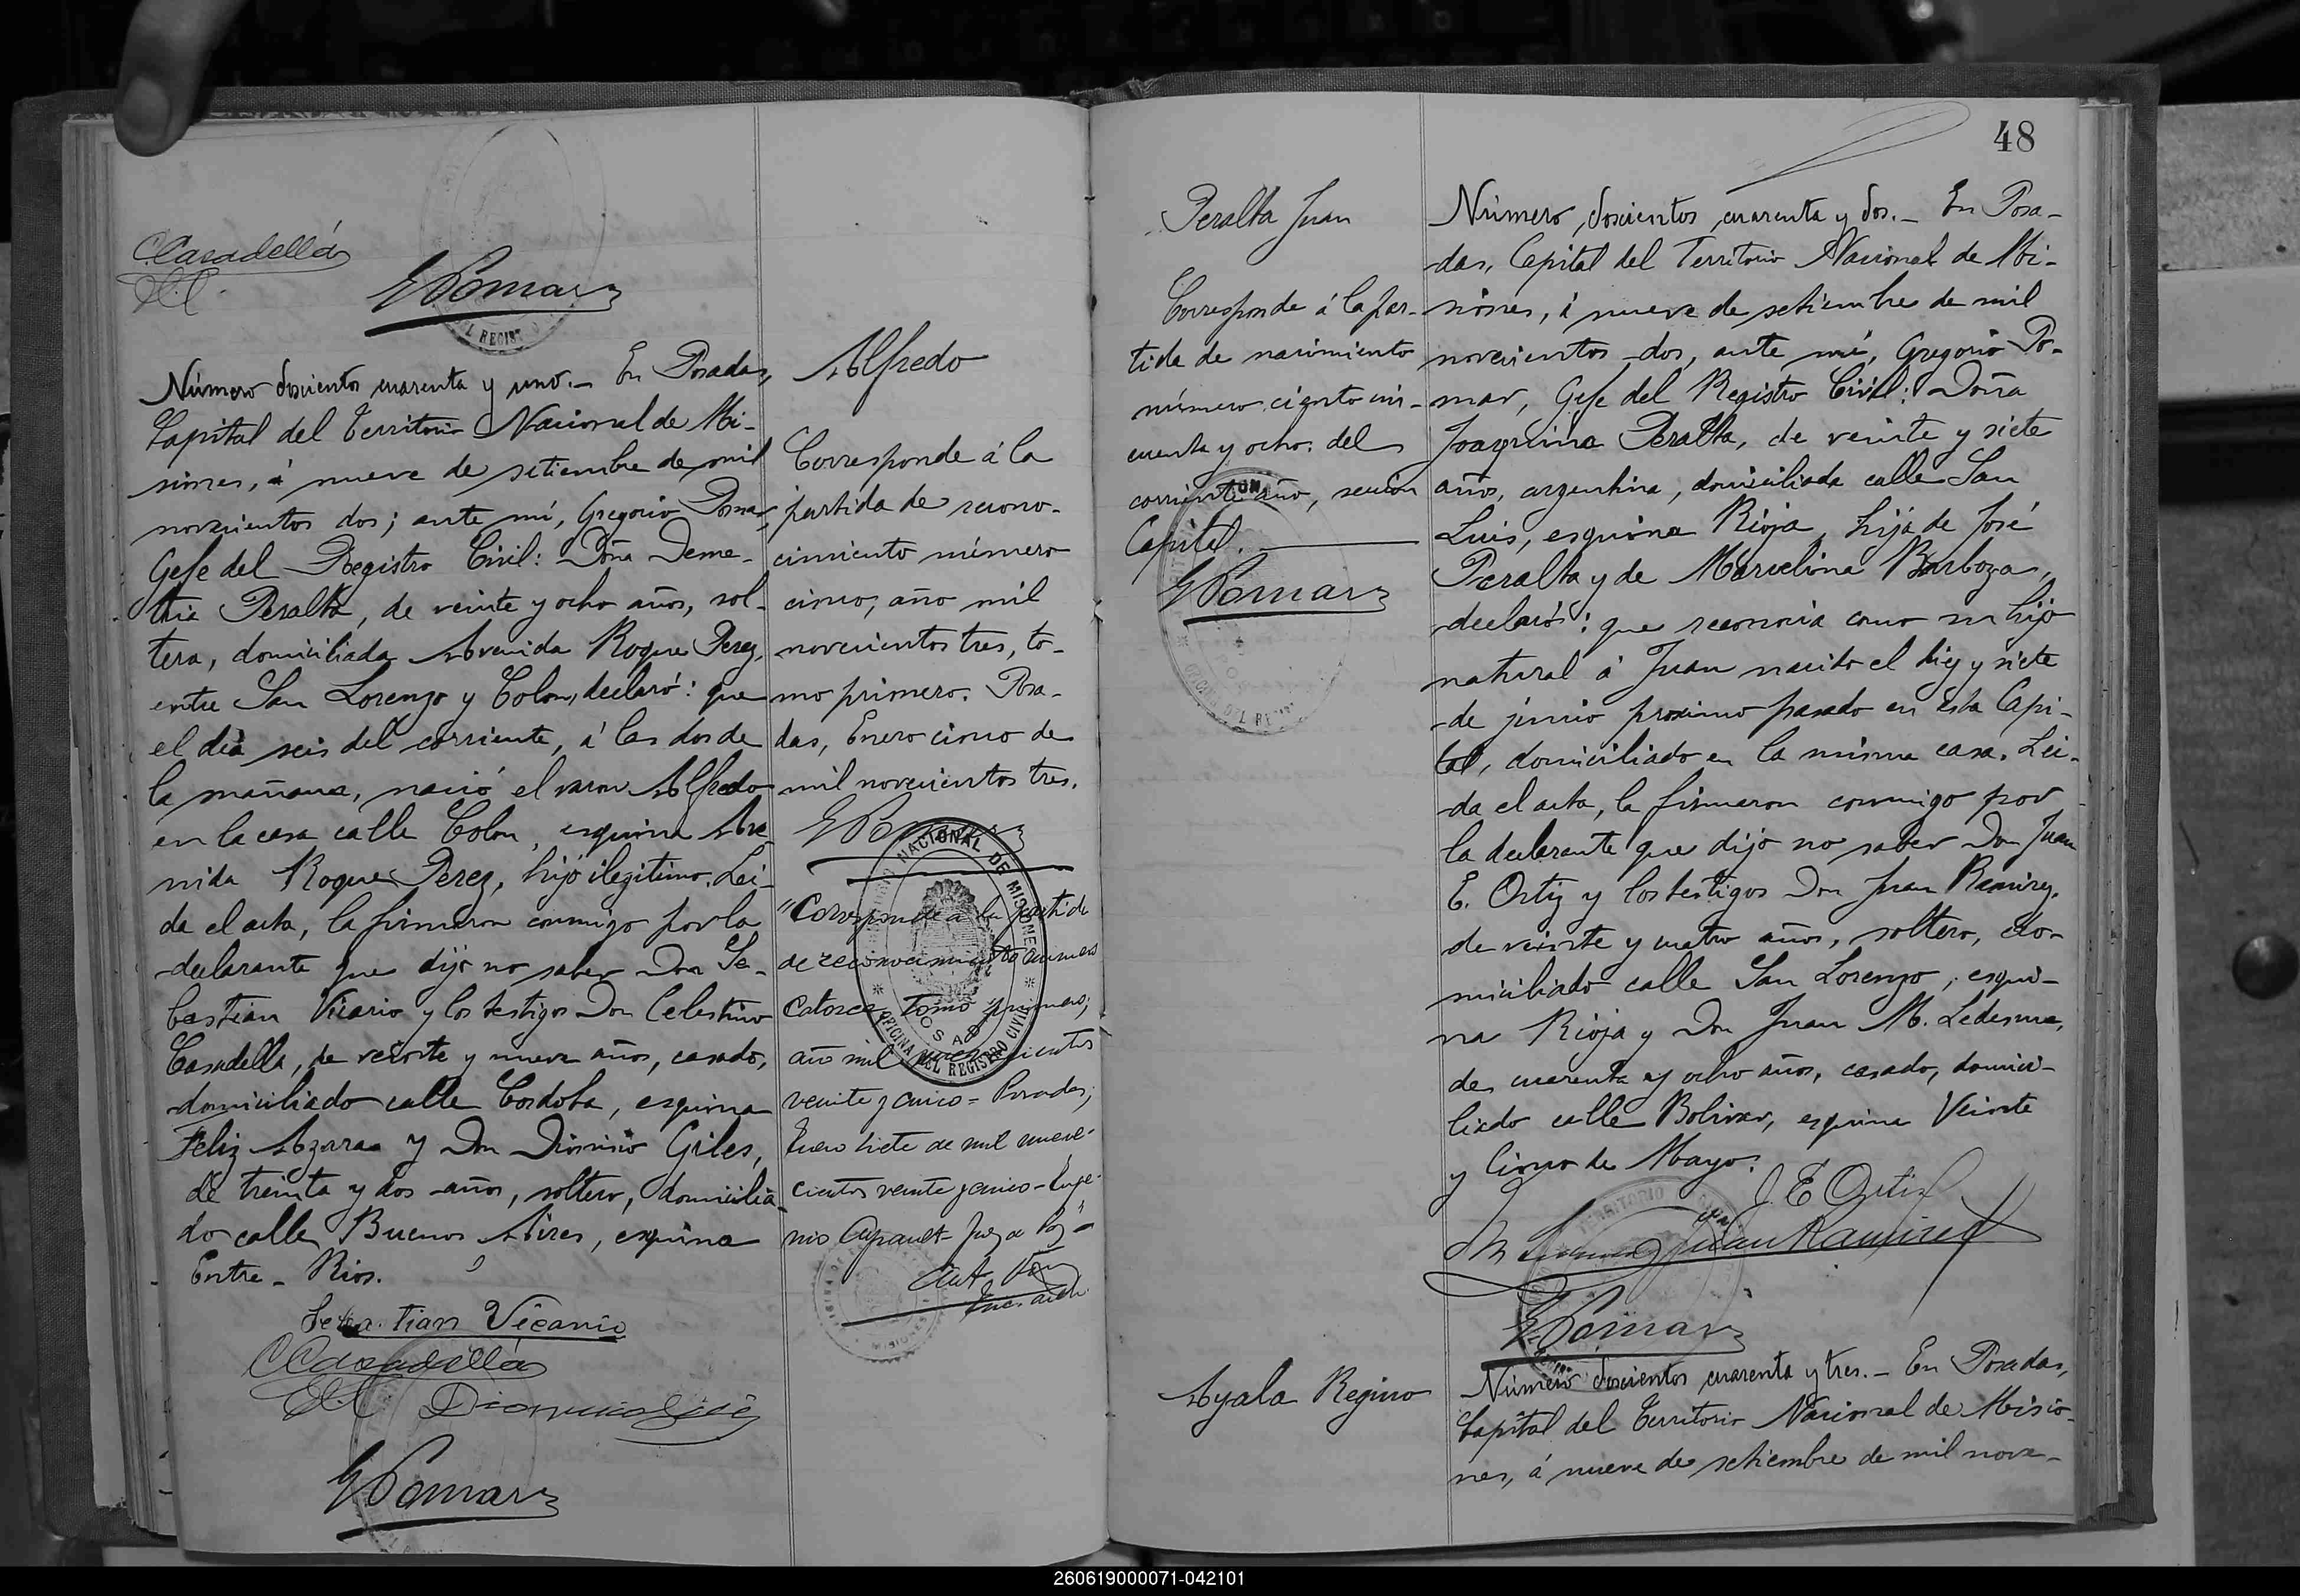 CCasadellá
EPomar
L REGIST
Número doscientos cuarenta y uno.- En Posadas,
Capital del Territorio Nacional de Mi-
siones, á nueve de setiembre de mil
novecientos dos; ante mí, Gregorio Pomar,
Gefe del Registro Civil: Doña Deme-
tria Peralta, de veinte y ocho años, sol-
tera, domiciliada Avenida Roque Perez,
entre San Lorenzo y Colon, declaró: que
el dia seis del corriente, á las dos de
la mañana, nació el varon Alfredo
en la casa calle Colon, esquina Ave-
nida Roque Perez, hijo ilegitimo. Lei-
da el acta, la firmaron conmigo por la
declarante que dijo no saber Don Se-
bastian Vicario y los testigos Don Celestino
Casadella, de veinte y nueve años, casado,
domiciliado calle Cordoba, esquina
Feliz Azara y Don Dionisio Giles,
de treinta y dos años, soltero, domicilia-
do calle Buenos Aires, esquina
Entre-Rios.
Sebastian Vicario
CCasadellá
EPomar
Alfredo
Corresponde á la
partida de recono-
cimiento número
cinco, año mil
novecientos tres, to-
mo primero. Posa-
das, Enero cinco de
mil novecientos tres.
EPomar
NACIONAL DE MISIONES
OFICINA DEL REGISTRO CIVIL
"Corresponde a la partida
de reconocimiento numero
catorce, tomo primero,
año mil novecientos
veinte y cinco = Posadas,
Enero siete de mil nove-
cientos veinte y cinco - Euge-
nio
48
Peralta Juan
Corresponde á la par-
tida de nacimiento
número ciento cin-
cuenta y ocho del
corriente año, seccion
Capital.
EPomar
Número doscientos cuarenta y dos.- En Posa-
das, Capital del Territorio Nacional de Mi-
siones, á nueve de setiembre de mil
novecientos dos, ante mí, Gregorio Po-
mar, Gefe del Registro Civil: Doña
Joaquina Peralta, de veinte y siete
años, argentina, domiciliada calle San
Luis, esquina Rioja, hija de José
Peralta y de Marcelina Barboza,
declaró: que reconocia como su hijo
natural á Juan nacido el diez y siete
de junio proximo pasado en esta Capi-
tal, domiciliado en la misma casa. Lei-
da el acta, la firmaron conmigo por
la declarante que dijo no saber Don Juan
E. Ortiz y los testigos Don Juan Ramirez,
de veinte y cuatro años, soltero, do-
miciliado calle San Lorenzo, esqui-
na Rioja y Don Juan M. Ledesma,
de cuarenta y ocho años, casado, domici-
liado calle Bolivar, esquina Veinte
y Cinco de Mayo.
J. E. Ortiz
Juan Ramirez
EPomar
Ayala Regino
Número doscientos cuarenta y tres.- En Posadas,
Capital del Territorio Nacional de Misio-
nes, á nueve de setiembre de mil nove-
260619000071-042101